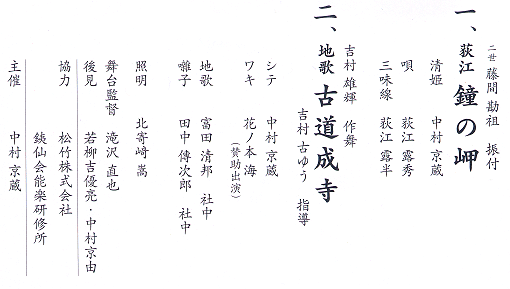 一、荻江 鐘の岬
二世 藤間 勘祖 振付
清姫 中村 京蔵
唄 荻江 露秀
三味線 荻江 露半
二、地歌 古道成寺
吉村 雄輝 作舞
吉村 古ゆう 指導
シテ 中村 京蔵
ワキ 花ノ本 海
(賛助出演)
地歌 富田 清邦 社中
囃子 田中 傳次郎 社中
照明 北寄﨑 嵩
舞台監督 滝沢 直也
後見 若柳吉優亮・中村京由
協力 松竹株式会社
銕仙会能楽研修所
主催 中村 京蔵